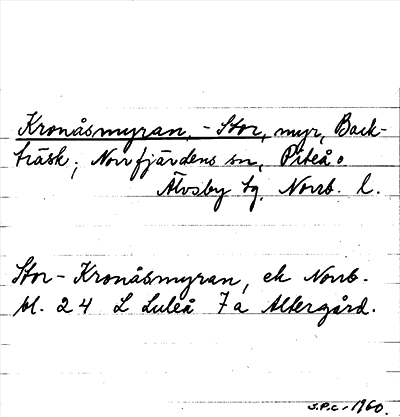 Kronåsmyran, - Stor, myr, Back-
träsk; Norrfjärdens sn, Piteå o
Älvsby tg. Norrb. l.
Stor - Kronåsmyran, ek Norrb.
bl. 24 L Luleå 7a Altergård.
J.P.C. 1960.